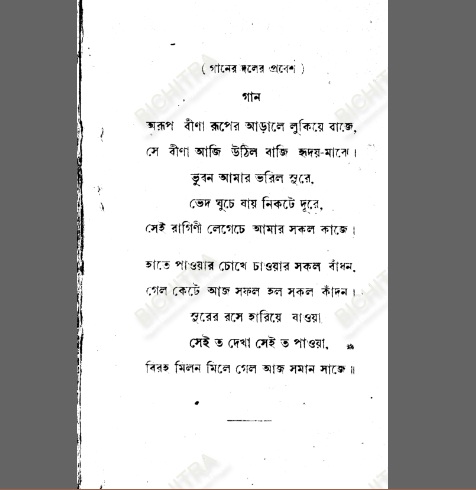 ( গানের দলের প্রবেশ )
গান
অরূপ বীণা রূপের আড়ালে লুকিয়ে বাজে,
সে বীণা আজি উঠিল বাজি হৃদয়-মাঝে।
ভুবন আমার ভরিল সুরে,
ভেদ ঘুচে যায় নিকটে দূরে,
সেই রাগিণী লেগেচে আমার সকল কাজে।
হাতে পাওয়ার চোখে চাওয়ার সকল বাঁধন,
গেল কেটে আজ সফল হল সকল কাঁদন।
সুরের রসে হারিয়ে যাওয়া
সেই ত দেখা সেই ত পাওয়া,
বিরহ মিলন মিলে গেল আজ সমান সাজে॥
BICHITRA
BICHITRA
BICHITRA
BICHITRA
BICHITRA